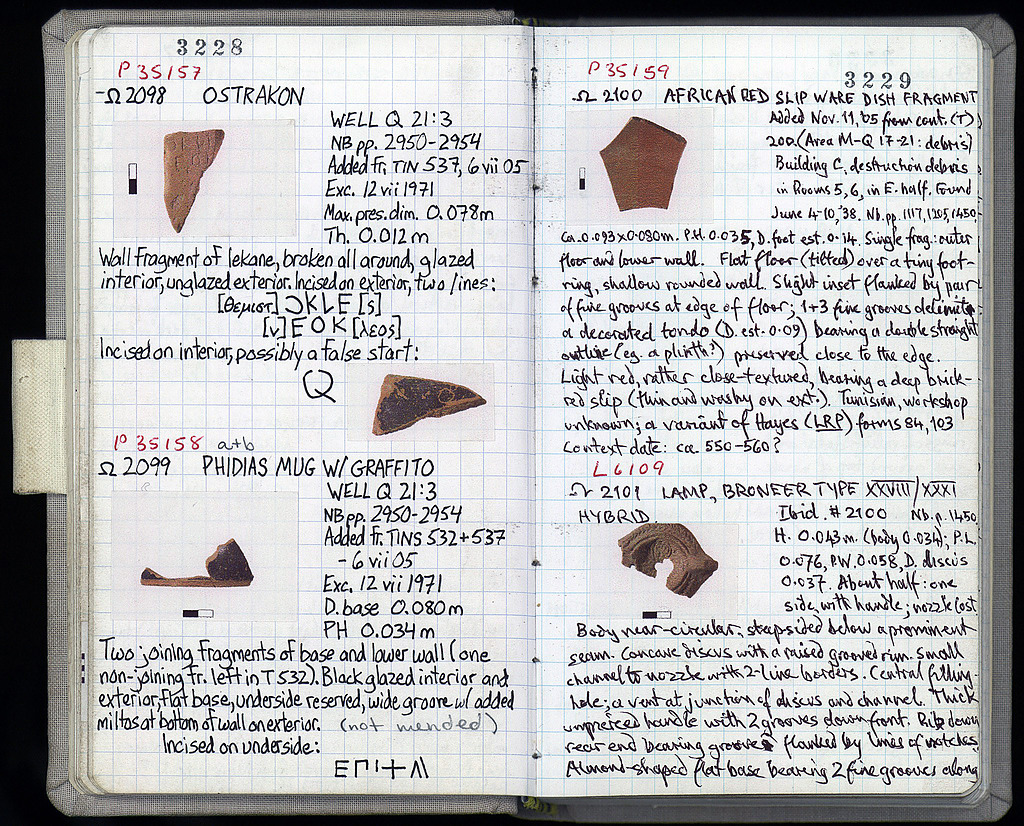 3228
P 35157
-Ω 2098 OSTRAKON
WELL Q 21:3
NB pp. 2950-2954
Added fr. TIN 537, 6 vii 05
Exc. 12 vii 1971
Max. pres. dim. 0.078m
Th. 0.012m
Wall fragment of lekane, broken all around, glazed
interior, unglazed exterior. Incised on exterior, two lines:
[θεμιστ]ƆKLE[ς]
[ν]EOK[λεος]
Incised on interior, possibly a false start:
Q
P 35158 a+b
Ω 2099 PHIDIAS MUG W/ GRAFFITO
WELL Q 21:3
NB pp. 2950-2954
Added fr. TINS 532+537
- 6 vii 05
Exc. 12 vii 1971
D. base 0.080m
PH 0.034m
Two joining fragments of base and lower wall (one
non-joining fr. left in T 532). Black glazed interior and
exterior, flat base, underside reserved, wide groove w/ added
miltos at bottom of wall on exterior. (not mended)
Incised on underside:
3229
P 35159
Ω 2100 AFRICAN RED SLIP WARE DISH FRAGMENT
Added Nov. 11, '05 from cont. (T)
200. (Area M-Q 17-21: debris)
Building C, destruction debris
in Rooms 5, 6, in E. half. Found
June 4-10, '38. Nb. pp. 1117, 1205, 1450,
ca. 0.093x0.080m. P.H. 0.035, D. foot est. 0.14. Single frag.: outer
floor and lower wall. Flat floor (tilted) over a tiny foot-
ring, shallow rounded wall. Slight inset flanked by pair
of fine grooves at edge of floor; 1+3 fine grooves delimit
a decorated tondo (D. est. 0.09) bearing a double straight
outline (eg. a plinth?) preserved close to the edge.
Light red, rather close-textured, bearing a deep brick-
red slip (thin and washy on ext.). Tunisian, workshop
unknown; a variant of Hayes (LRP) forms 84, 103
Context date: ca. 550-560?
L 6109
Ω 2101 LAMP, BRONEER TYPE XXVIII/XXXI
HYBRID Ibid. #2100 Nb. p. 1450
H. 0.043m. (body 0.034); P.L.
0.076, P.W. 0.058, D. discus
0.037. About half: one
side, with handle; nozzle lost
Body near-circular, steep sided below a prominent
seam. Concave discus with a raised grooved rim. Small
channel to nozzle with 2-line borders. Central filling-
hole; a vent at junction of discus and channel. Thick
unpierced handle with 2 grooves down front. Rib down
rear end bearing grooves flanked by lines of notches
Almond-shaped flat base bearing 2 fine grooves along